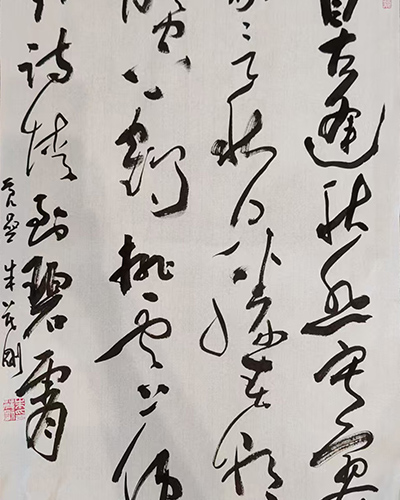 自古逢秋悲寂寥
我言秋日勝春朝
晴空一鹤排云上便
引诗情到碧霄
朱茂刚